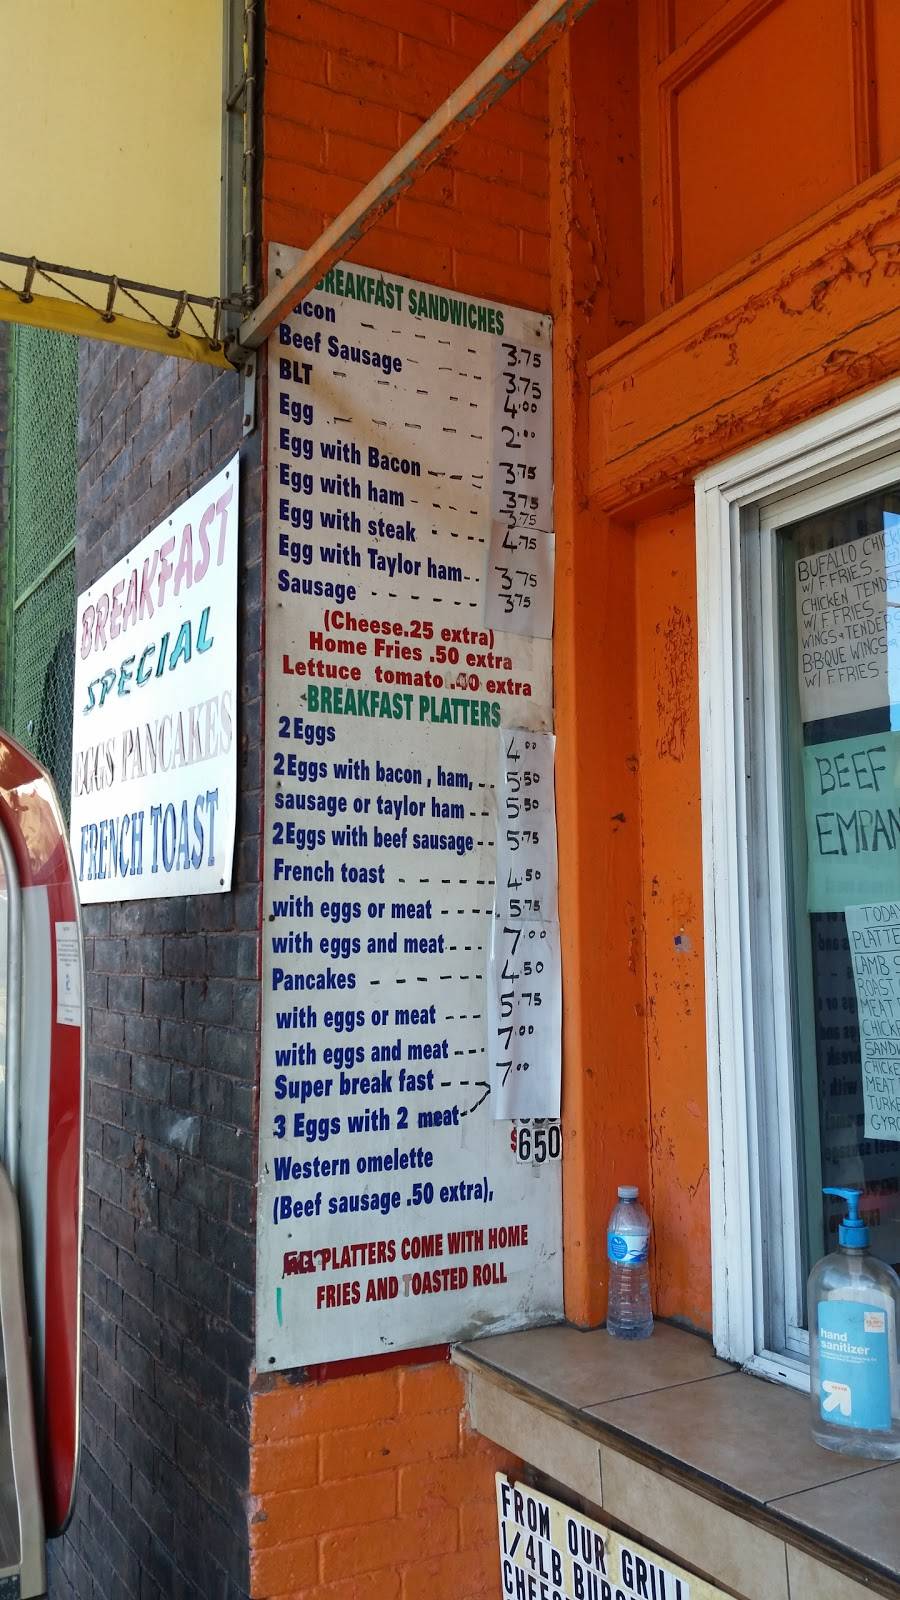 BREAKFAST SANDWICHES
acon 3.75
Beef Sausage 3.75
BLT 4.00
Egg 2.00
Egg with Bacon 3.75
Egg with ham 3.75
3.75
Egg with steak 4.75
Egg with Taylor ham 3.75
Sausage 3.75
(Cheese.25 extra)
Home Fries .50 extra
Lettuce tomato .40 extra
BREAKFAST PLATTERS
2Eggs 4.00
2Eggs with bacon , ham, 5.50
sausage or taylor ham 5.50
2Eggs with beef sausage 5.75
French toast 4.50
with eggs or meat 5.75
with eggs and meat 7.00
Pancakes 4.50
with eggs or meat 5.75
with eggs and meat 7.00
Super break fast 7.00
3 Eggs with 2 meat
$650
Western omelette
(Beef sausage .50 extra),
PLATTERS COME WITH HOME
FRIES AND TOASTED ROLL
BREAKFAST
SPECIAL
EGGS PANCAKES
FRENCH TOAST
BUFALLO CHICK
W/ F FRIES
CHICKEN TENDE
W/ F FRIES
WINGS + TENDERS
BBQUE WINGS
W/ F FRIES
BEEF
EMPAN
TODAY
PLATTE
LAMB S
ROAST
MEAT
CHICKE
SANDW
CHICKE
MEAT
TURKE
GYRO
hand
sanitizer
FROM OUR GRILL
1/4LB BURG
CHEES